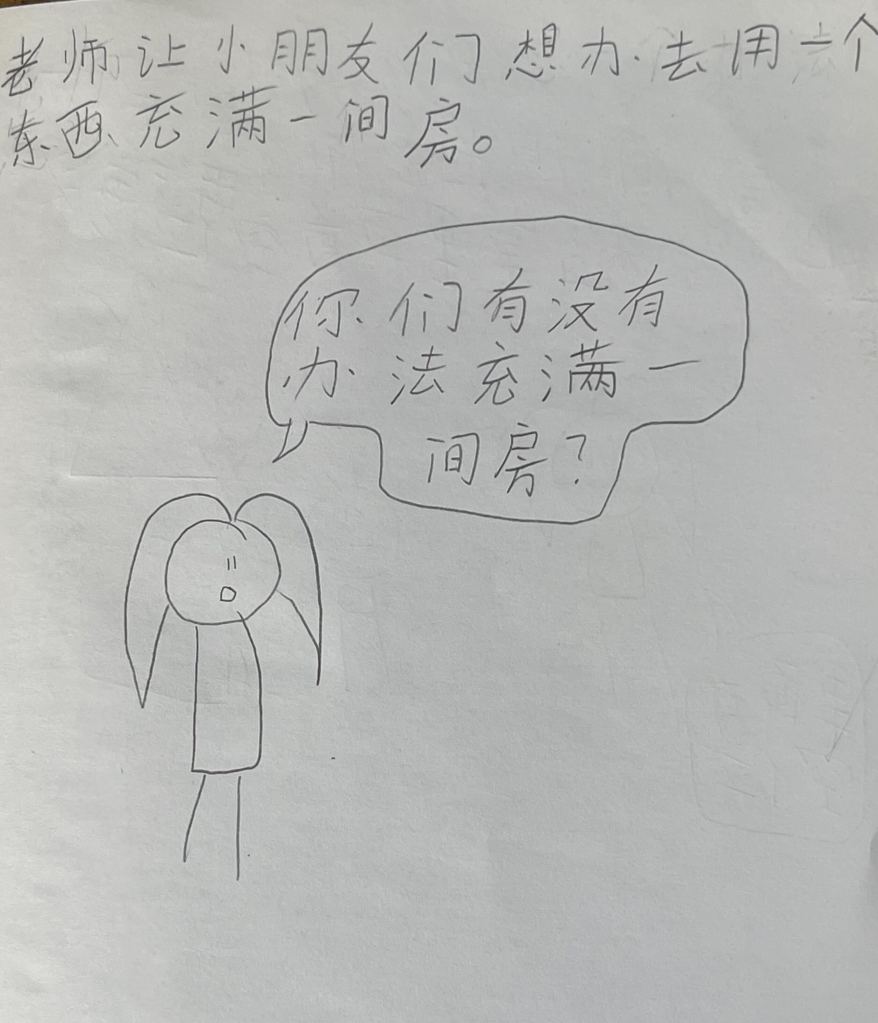 老师让小朋友们想办去用一个
东西充满一间房。
你们有没有
办法充满一
间房?